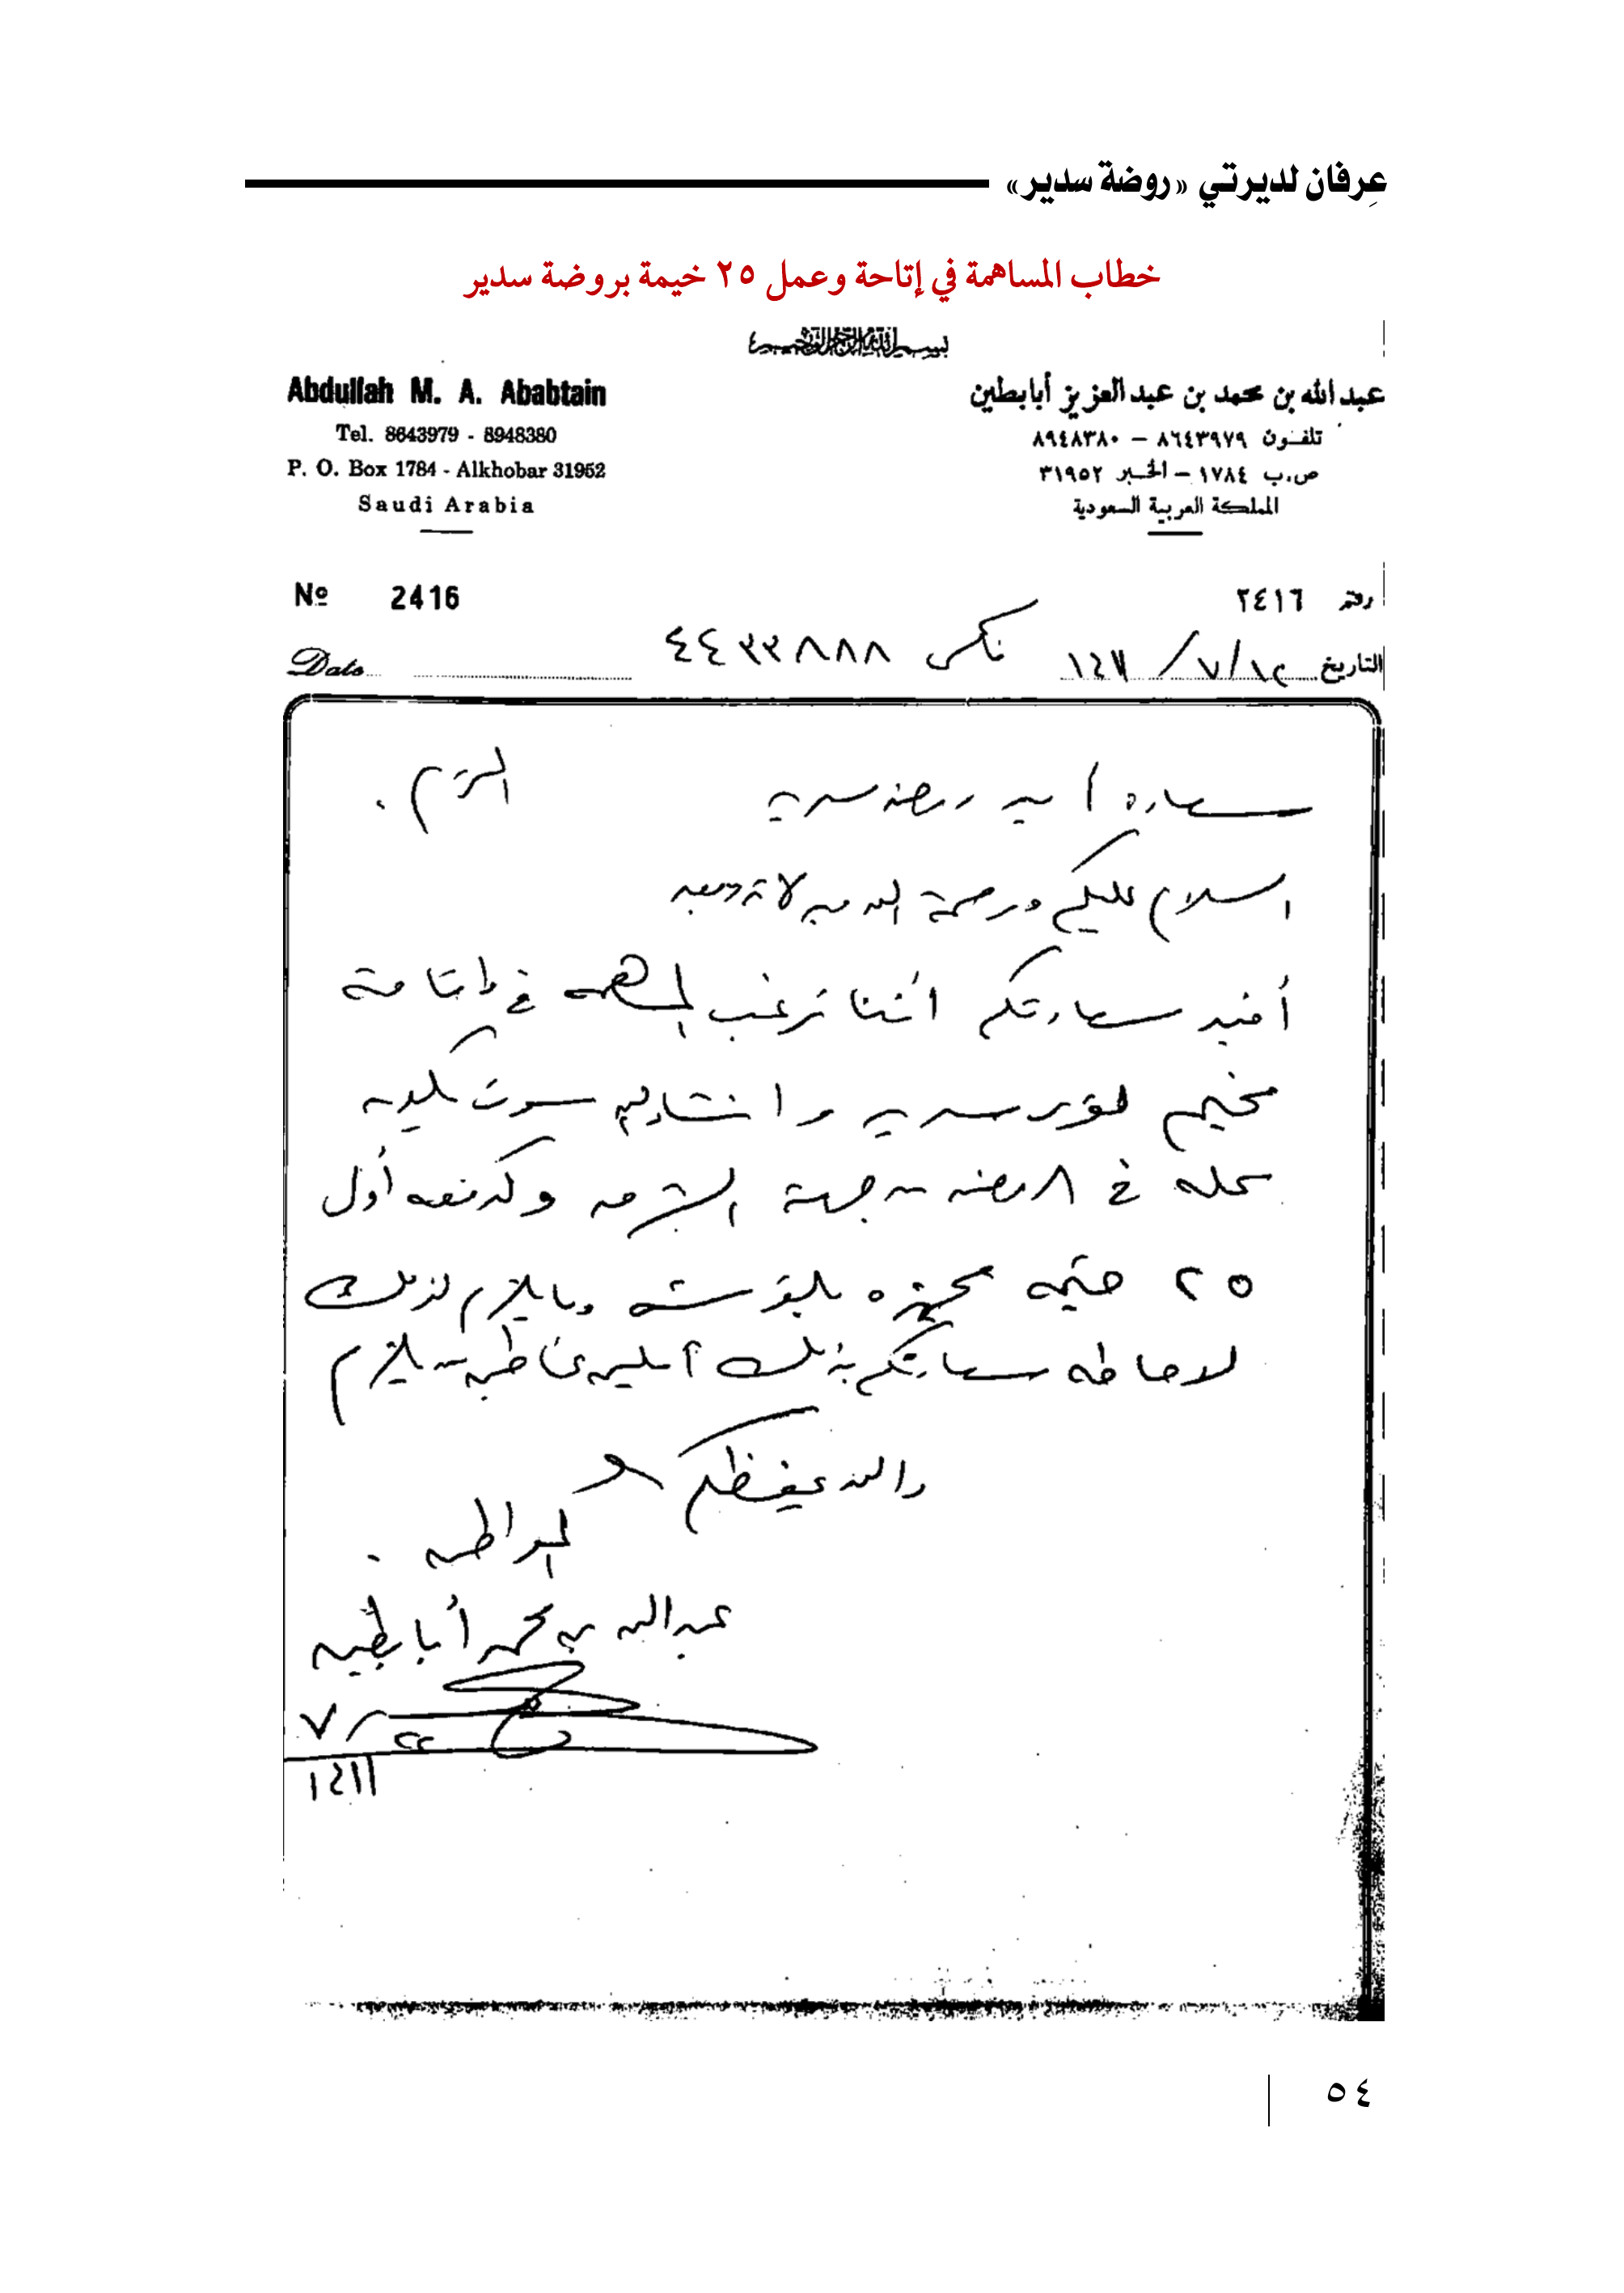 عِرفان لديرتي «روضة سدير»
خطاب المساهمة في إتاحة وعمل ٢٥ خيمة بروضة سدير
بسم الله الرحمن الرحيم
عبد الله بن محمد بن عبد العزيز أبابطين
تلفون ٨٦٤٣٩٧٩ – ٨٩٤٨٣٨٠
ص.ب ١٧٨٤ – الخبر ٣١٩٥٢
المملكة العربية السعودية
Abdullah M. A. Ababtain
Tel. 8643979 - 8948380
P. O. Box 1784 - Alkhobar 31952
Saudi Arabia
رقم ٢٤١٦
Nº 2416
التاريخ ١٢/٧/ فاكس ٤٤٣٣٨٨٨
Date
سعادة أمير روضة سدير
السلام عليكم ورحمة الله
أفيد سعادتكم اننا نرغب المساهمة في
مخيم سدير سوف يكون
محله في الروضة من جهة أول
٢٥ خيمه مجهزه وما يلزم لذلك
لاحاطة سعادتكم بذلك يلزم
والله يحفظكم
المواطن
عبدالله بن محمد أبابطين
٢٢/٧
١٤١١
٥٤